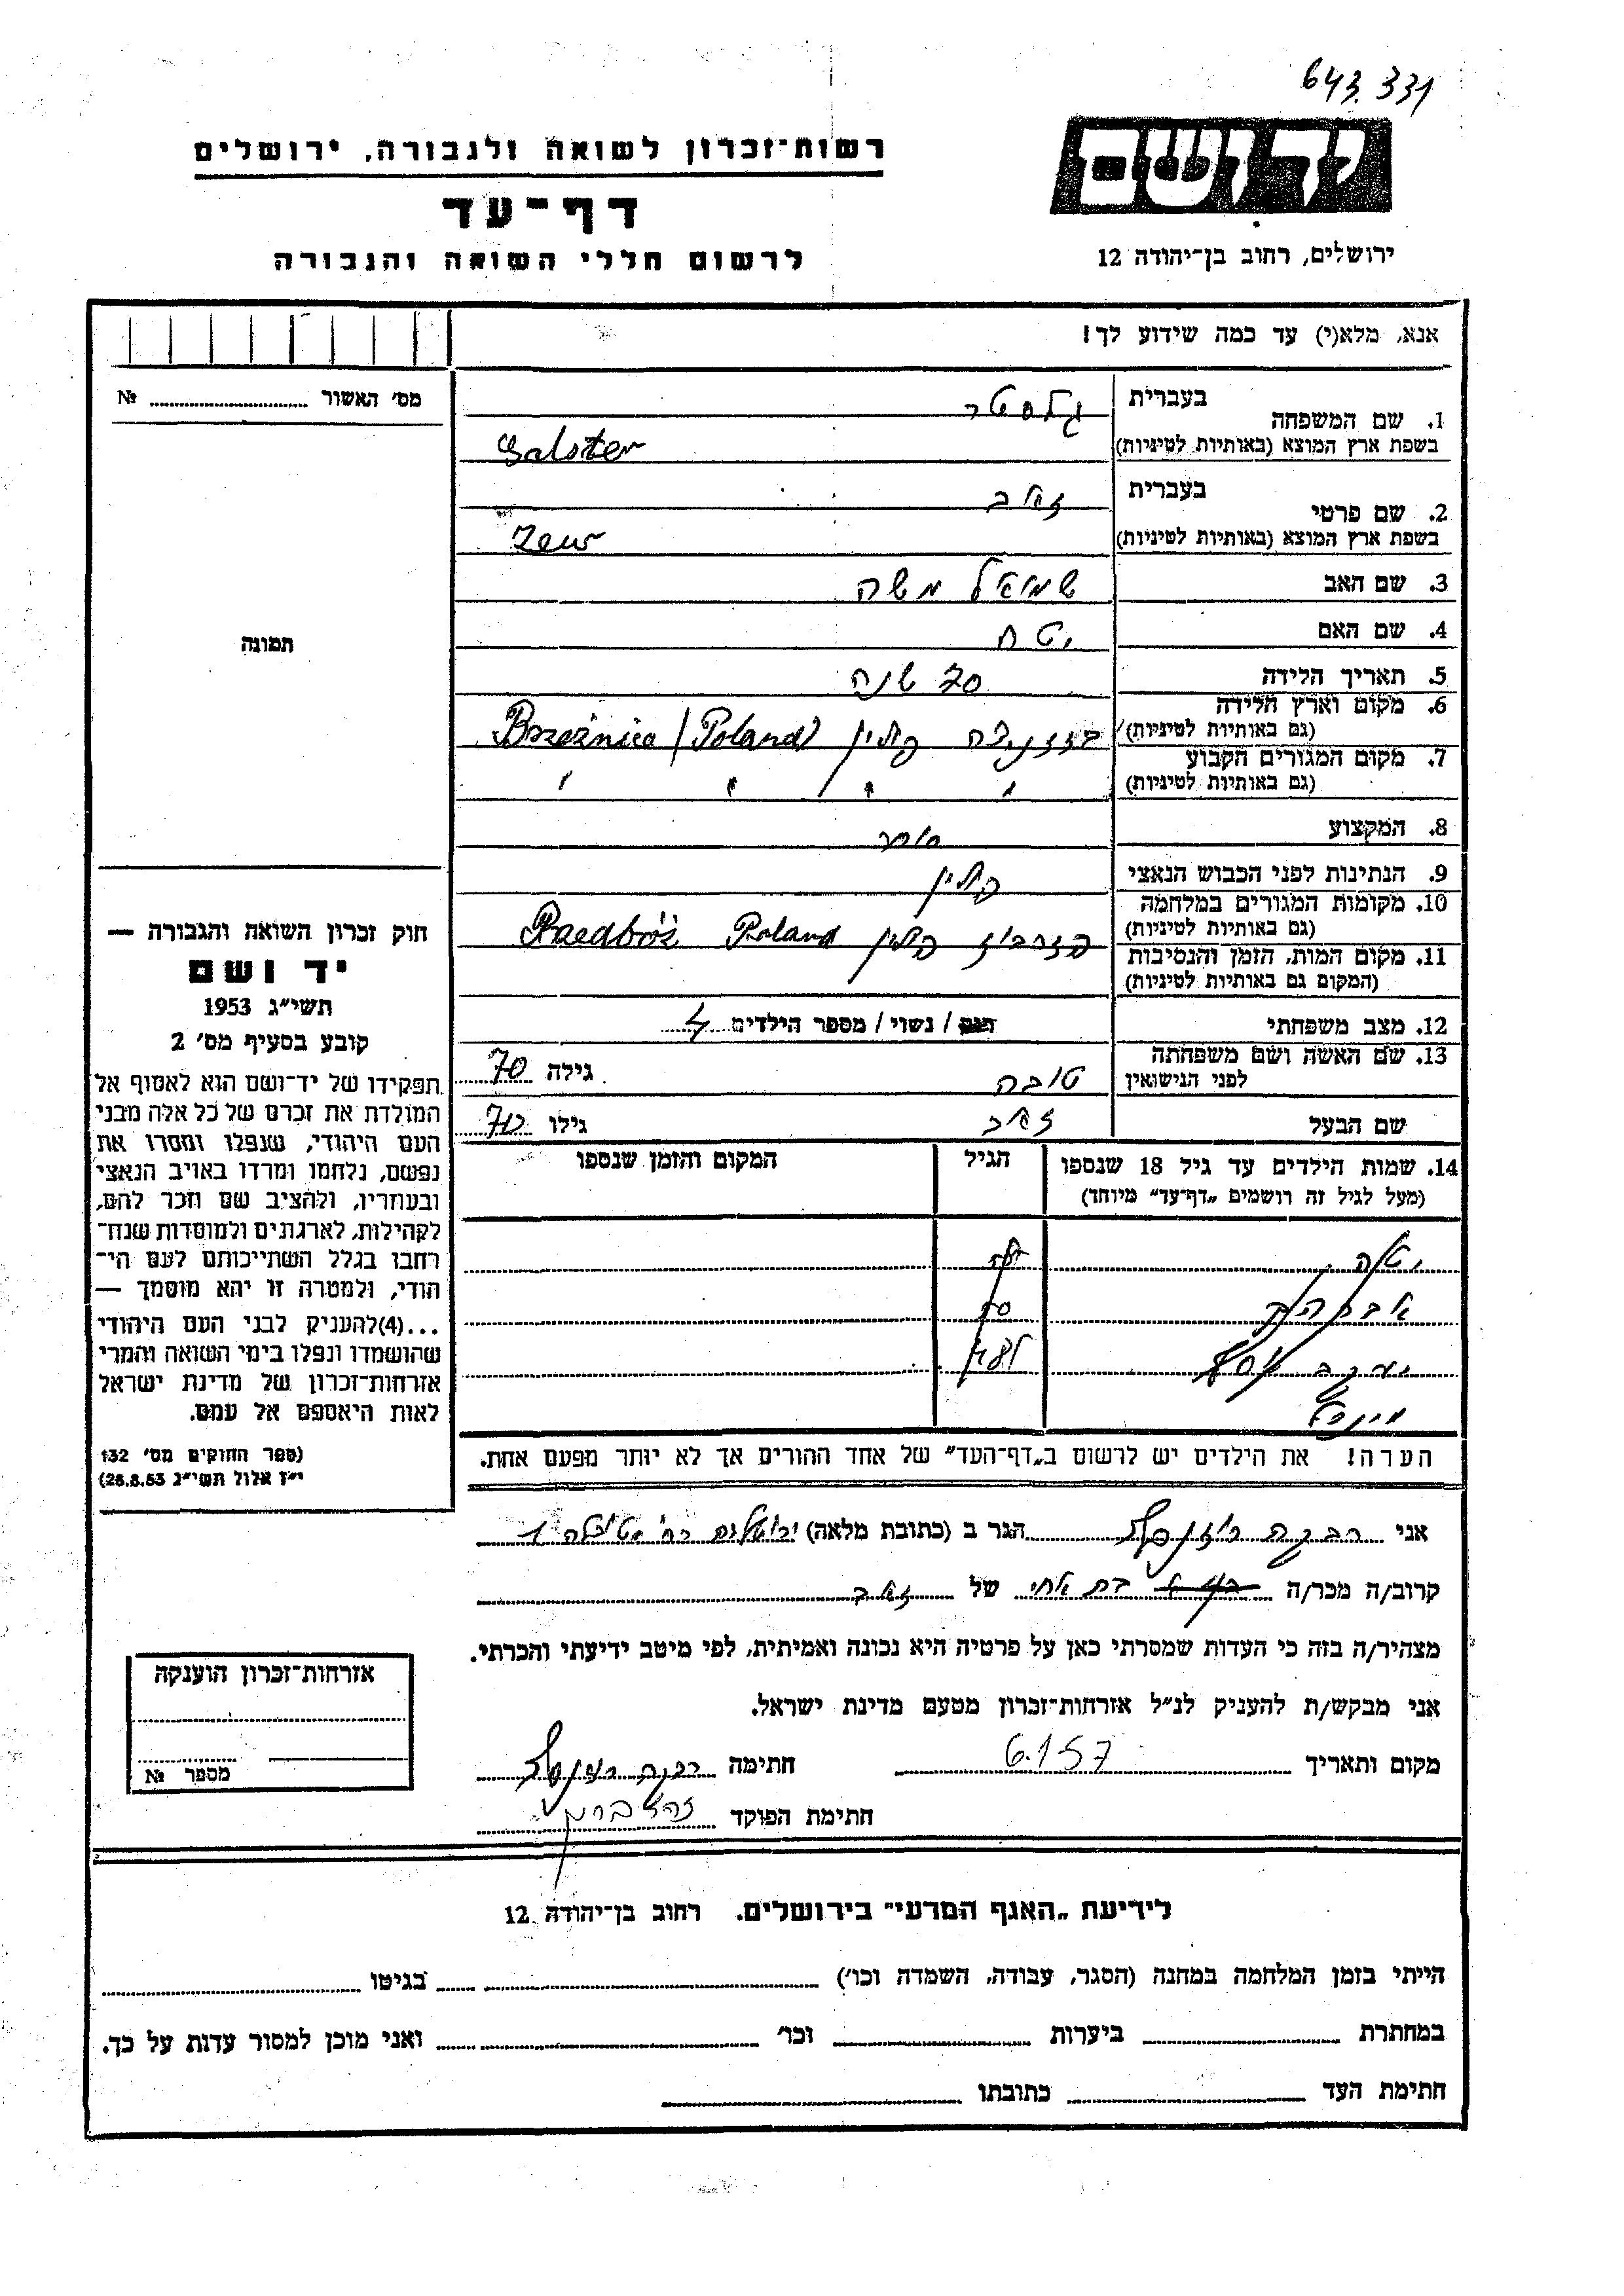 643.331
רשות־זכרון לשואה ולגבורה, ירושלים
יד ושם
דף־עד
לרשום חללי השואה והגבורה
ירושלים, רחוב בן־יהודה 12
אנא, מלא(י) עד כמה שידוע לך!
מס׳ האשור № 
בעברית
1. שם המשפחה גלסטר
בשפת ארץ המוצא (באותיות לטיניות) Galster
בעברית
2. שם פרטי זאב
בשפת ארץ המוצא (באותיות לטיניות) Zew
3. שם האב שמואל משה
4. שם האם
תמונה
5. תאריך הלידה 70 שנה
6. מקום וארץ הלידה
(גם באותיות לטיניות) פולין Brzeźnica (Poland)
7. מקום המגורים הקבוע
(גם באותיות לטיניות) " " " "
8. המקצוע סוחר
9. הנתינות לפני הכבוש הנאצי פולין
10. מקומות המגורים במלחמה
(גם באותיות לטיניות) פולין Poland
11. מקום המות, הזמן והנסיבות
(המקום גם באותיות לטיניות)
12. מצב משפחתי רווק / נשוי / מספר הילדים 4
13. שם האשה ושם משפחתה
לפני הנישואין טובה גילה 70
שם הבעל זאב גילו 70
14. שמות הילדים עד גיל 18 שנספו
(מעל לגיל זה רושמים „דף־עד״ מיוחד)
הגיל
המקום והזמן שנספו
אברהם
יעקב יוסף
הערה! את הילדים יש לרשום ב„דף־העד״ של אחד ההורים אך לא יותר מפעם אחת.
חוק זכרון השואה והגבורה —
יד ושם
תשי״ג 1953
קובע בסעיף מס׳ 2
תפקידו של יד־ושם הוא לאסוף אל
המולדת את זכרם של כל אלה מבני
העם היהודי, שנפלו ומסרו את
נפשם, נלחמו ומרדו באויב הנאצי
ובעוזריו, ולהציב שם וזכר להם,
לקהילות, לארגונים ולמוסדות שנח־
רבו בגלל השתייכותם לעם הי־
הודי, ולמטרה זו יהא מוסמך —
...(4)להעניק לבני העם היהודי
שהושמדו ונפלו בימי השואה והמרי
אזרחות־זכרון של מדינת ישראל
לאות היאספם אל עמם.
(ספר החוקים מס׳ 132
י״ז אלול תשי״ג 28.8.53)
אני רבקה הגר ב (כתובת מלאה) ירושלים רח׳ 1
קרוב/ה מכר/ה בת אחי של זאב
מצהיר/ה בזה כי העדות שמסרתי כאן על פרטיה היא נכונה ואמיתית, לפי מיטב ידיעתי והכרתי.
אני מבקש/ת להעניק לנ״ל אזרחות־זכרון מטעם מדינת ישראל.
מקום ותאריך 6.1.57 חתימה רבקה
חתימת הפוקד
אזרחות־זכרון הוענקה
מספר №
לידיעת „האגף המדעי״ בירושלים. רחוב בן־יהודה 12
הייתי בזמן המלחמה במחנה (הסגר, עבודה, השמדה וכו׳) בגיטו
במחתרת ביערות וכו׳ ואני מוכן למסור עדות על כך.
חתימת העד כתובתו